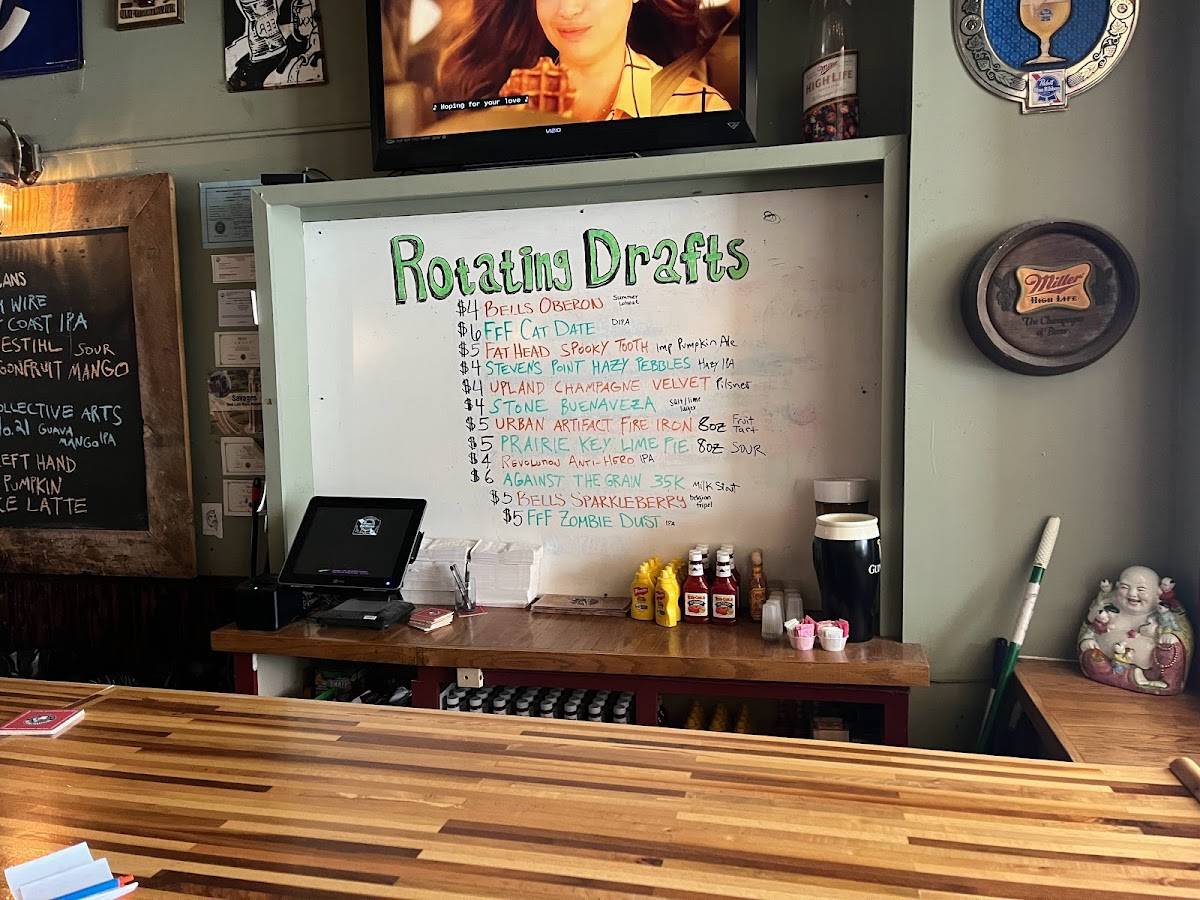 ♪ Hoping for your love ♪
VIZIO
Miller
HIGH LIFE
Rotating Drafts
$4 BELLS OBERON Summer Wheat
$6 FFF CAT DATE DIPA
$5 FAT HEAD SPOOKY TOOTH Imp Pumpkin Ale
$4 STEVENS POINT HAZY PEBBLES Hazy IPA
$4 UPLAND CHAMPAGNE VELVET Pilsner
$4 STONE BUENAVEZA Salt/lime lager
$5 URBAN ARTIFACT FIRE IRON 8oz Fruit Tart
$5 PRAIRIE KEY LIME PIE 8oz SOUR
$4 REVOLUTION ANTI-HERO IPA
$6 AGAINST THE GRAIN 35K Milk Stout
$5 BELLS SPARKLEBERRY Belgian tripel
$5 FFF ZOMBIE DUST IPA
ANS
WIRE
COAST IPA
ESTIHL SOUR
GONFRUIT MANGO
OLLECTIVE ARTS
No.21 GUAVA
MANGO IPA
EFT HAND
PUMPKIN
KE LATTE
Miller
HIGH LIFE
The Champagne
of Beers
Savages
GUIN